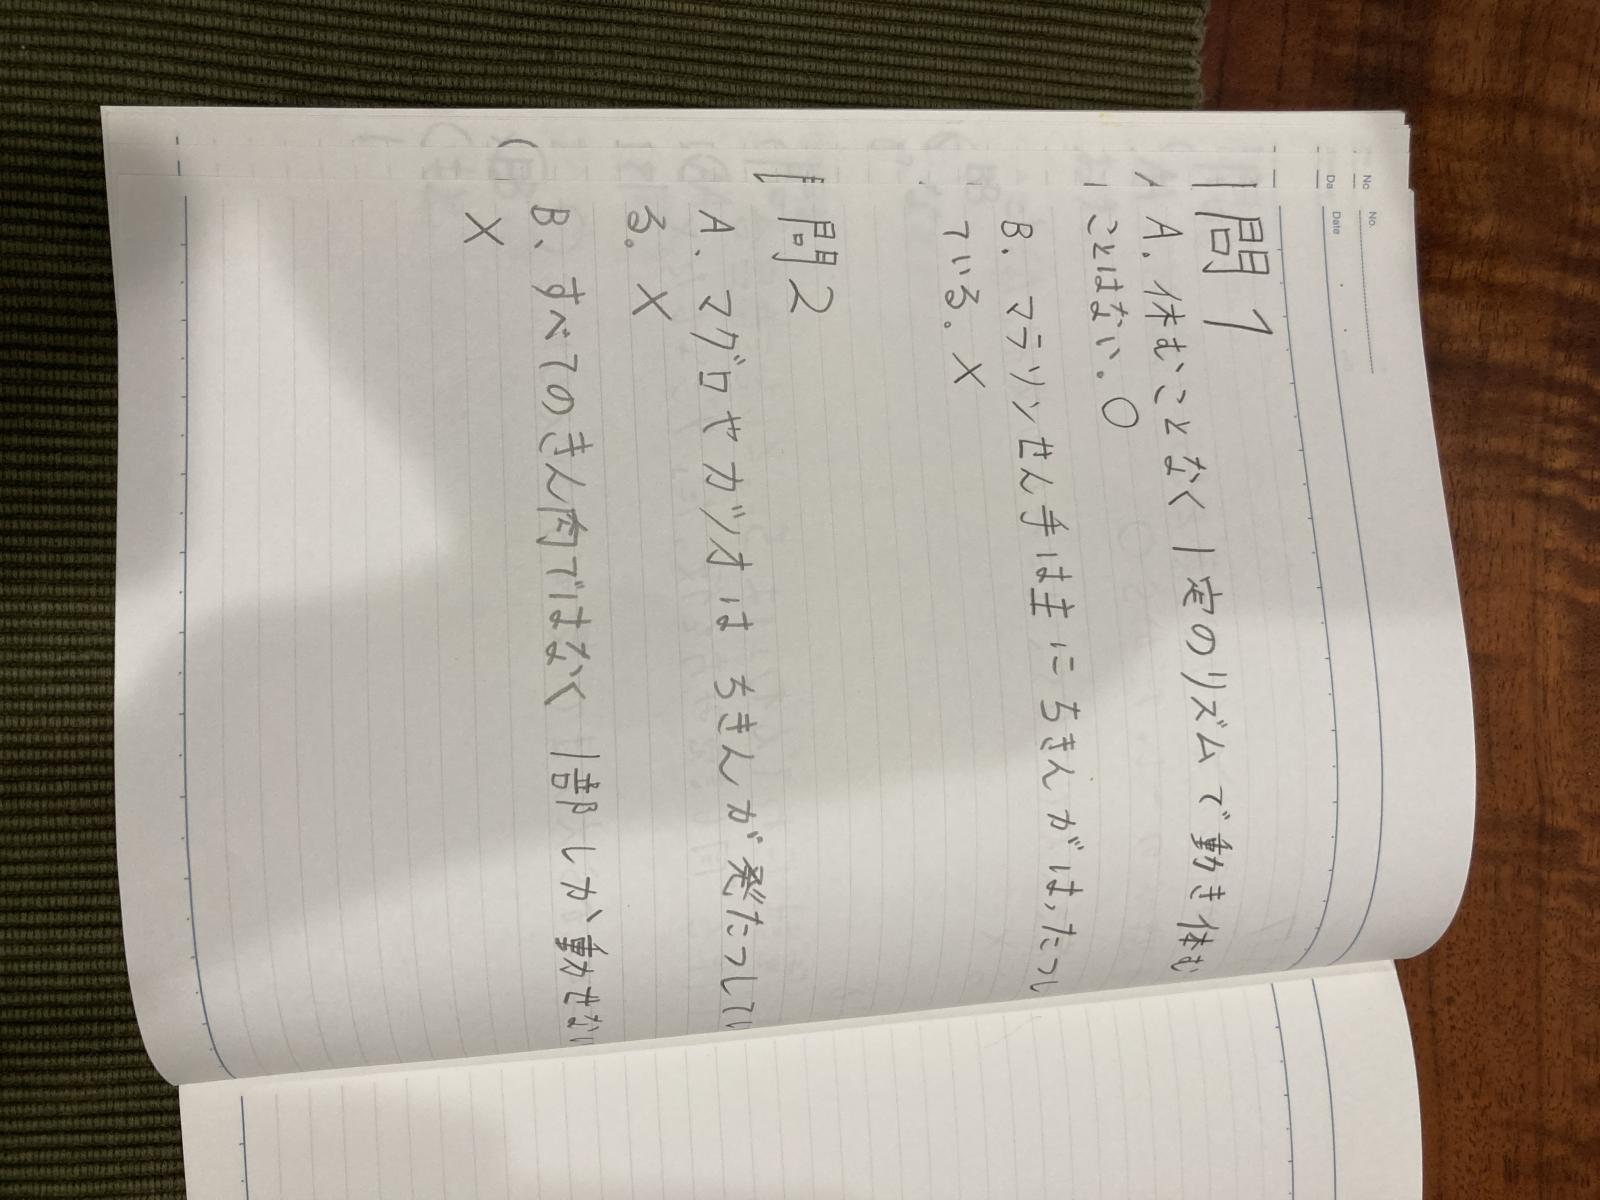 No.
Date
No
Da
問1
A. 休むことなく1定のリズムで動き休む
ことはない。○
B. マラソンせん手は主にちきんがはったつし
ている。×
問2
A. マグロやカツオはちきんが発たつしてい
る。×
B、すべてのきん肉ではなく1部しか動せない
×